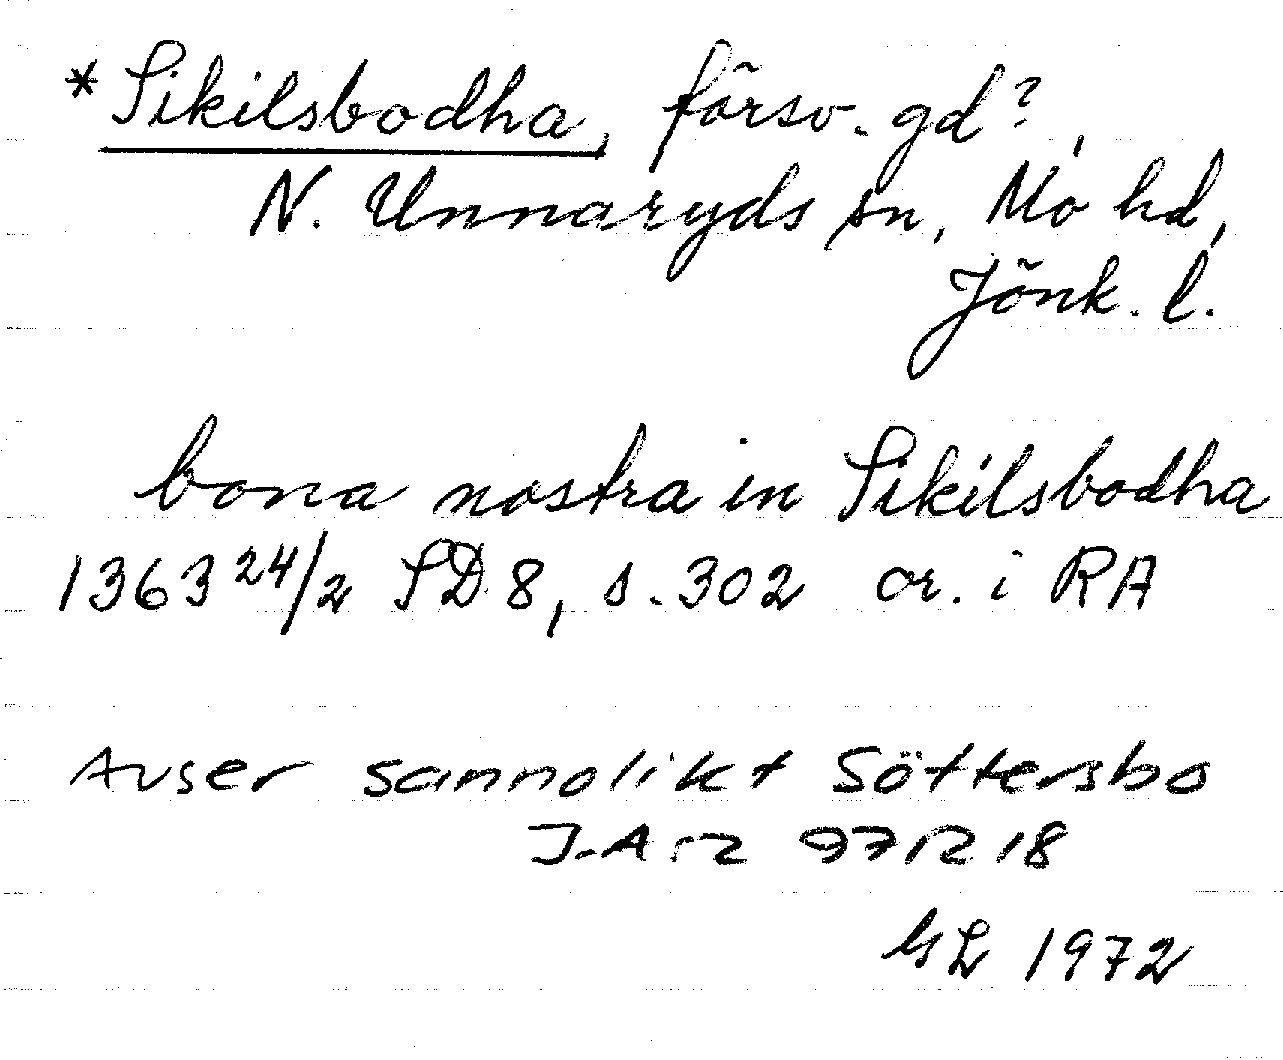 *Sikilsbodha, försv. gd?,
N. Unnaryds sn, Mo hd,
Jönk. l.
bona nostra in Sikilsbodha
1363 24/2 SD 8, s. 302 or. i RA
Avser sannolikt Söttersbo
971218
GL 1972